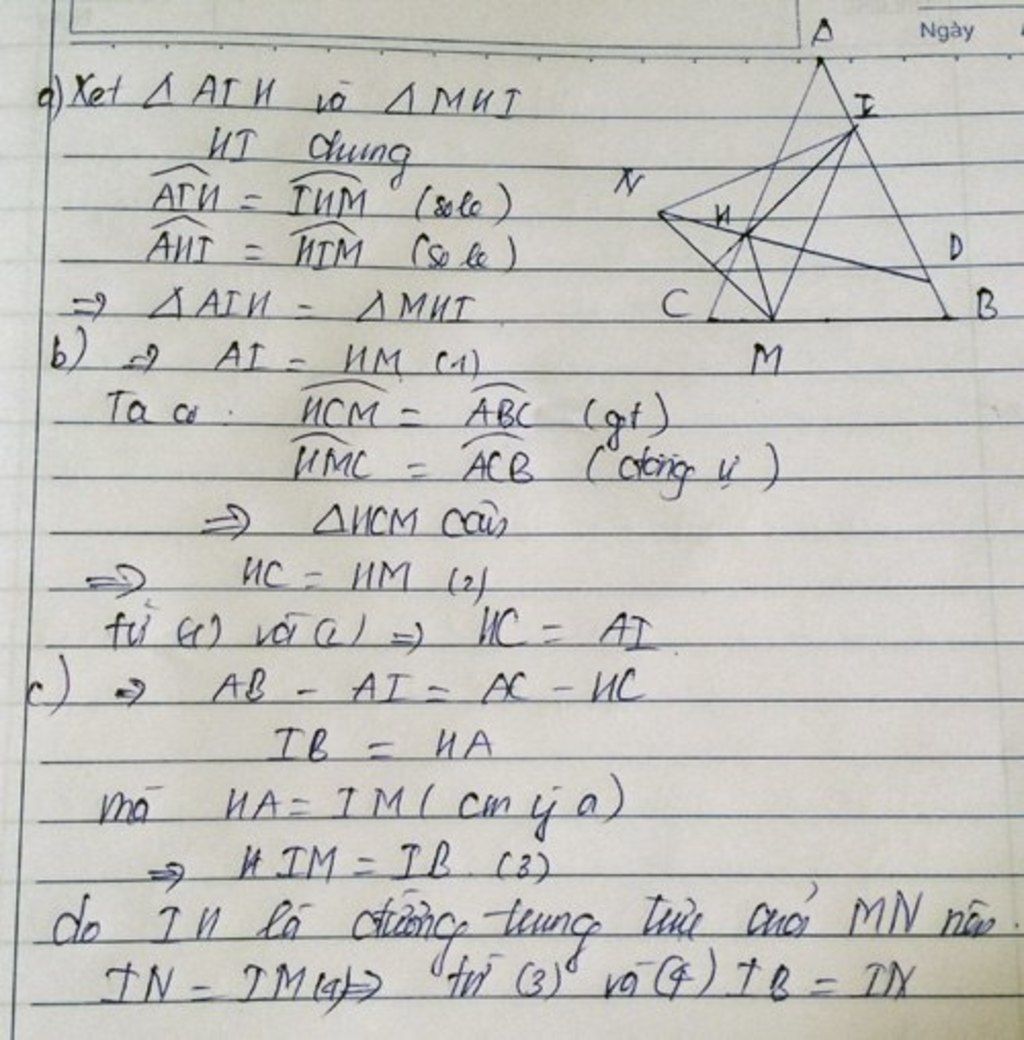 Ngày
A
I
N
H
D
C
B
M
a) Xét Δ AIH và Δ MHI
HI chung
AIH = IHM (so le)
AHI = HIM (so le)
=> Δ AIH = Δ MHI
b) => AI = HM (1)
Ta có: HCM = ABC (gt)
HMC = ACB (đồng vị)
=> ΔHCM cân
=> HC = HM (2)
từ (1) và (2) => HC = AI
c) => AB - AI = AC - HC
IB = HA
mà HA = IM (cm ý a)
=> IM = IB (3)
do IH là đường trung trực của MN nên
IN = IM (4) => từ (3) và (4) IB = IN